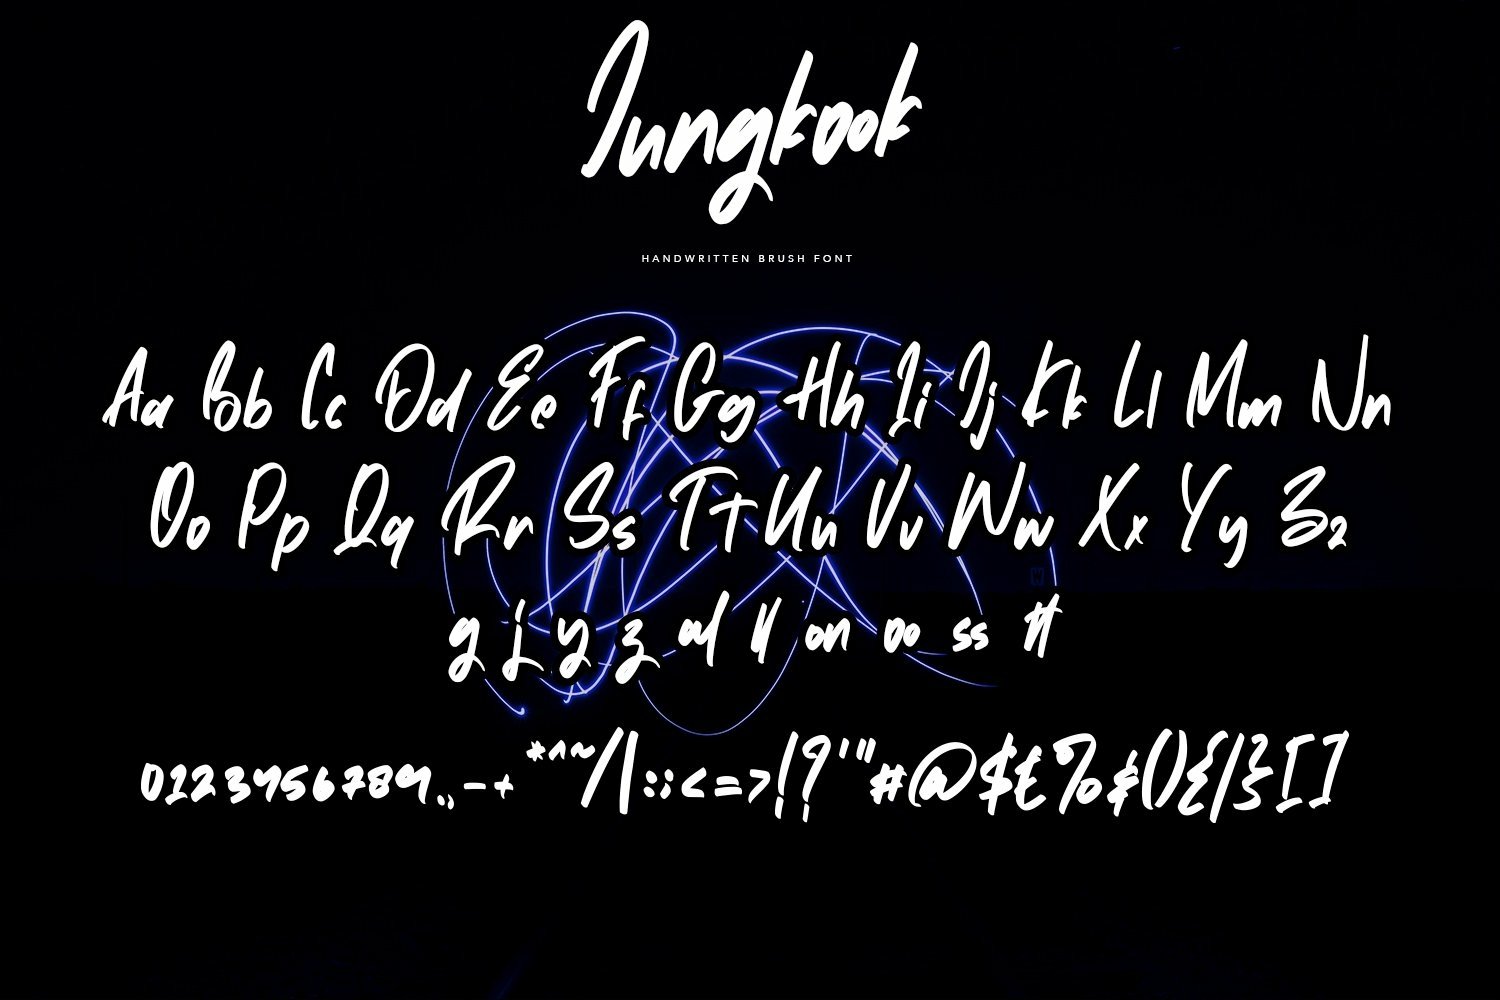 Jungkook
HANDWRITTEN BRUSH FONT
Aa Bb Cc Dd Ee Ff Gg Hh Ii Jj Kk Ll Mm Nn
Oo Pp Qq Rr Ss Tt Uu Vv Ww Xx Yy Zz
g j y z al ll on oo ss tt
0123456789.,-+*^~/|:;<=>!?'"#@$£%&(){/}[]